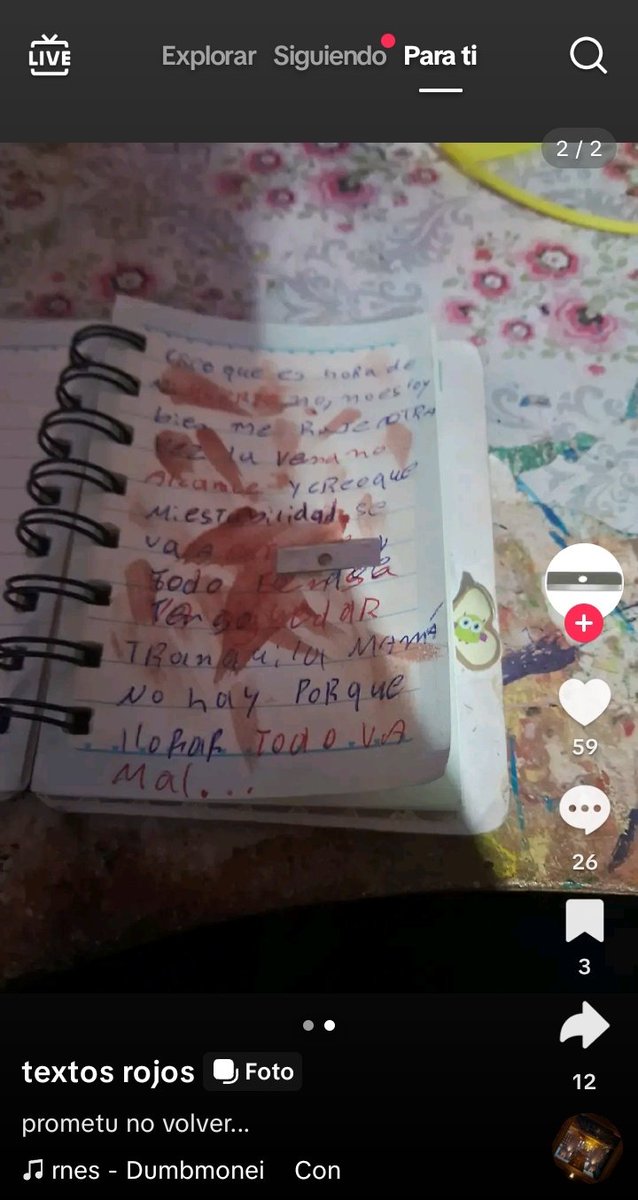 LIVE
Explorar Siguiendo Para ti
2 / 2
Creo que es hora de
no, no estoy
bien me RaJe OTRA
vez la vena no
Alcance y cReo que
Mi estabilidad se
va a
todo
Tengo
TRanquila MAMÁ
No hay PoRque
lloRaR Todo VA
Mal...
59
26
3
12
textos rojos Foto
prometu no volver...
rnes - Dumbmonei Con